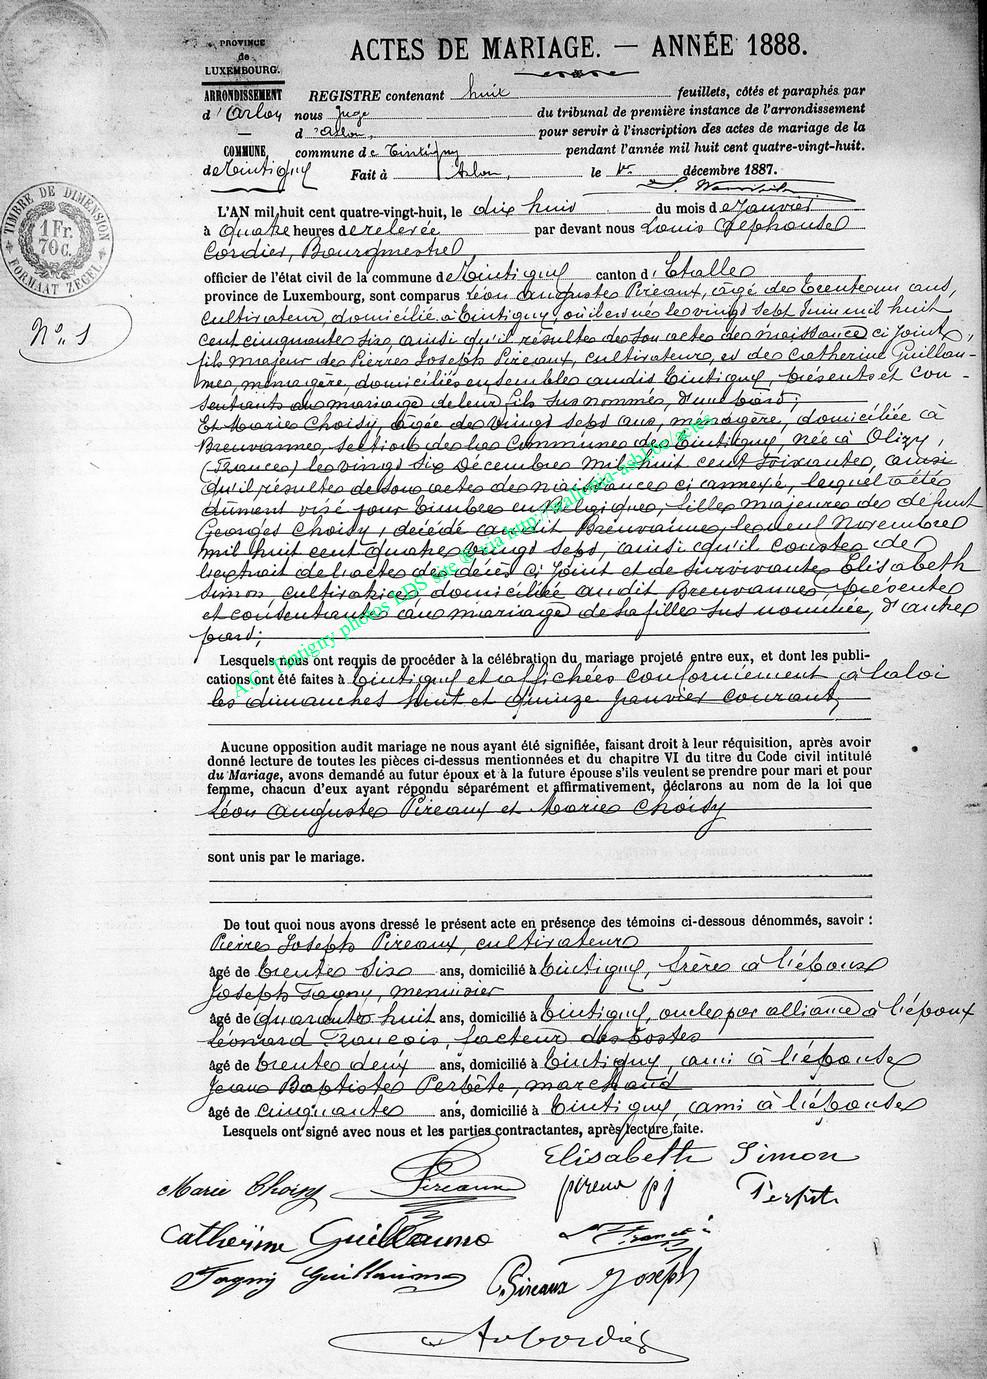 PROVINCE
de
LUXEMBOURG.
ARRONDISSEMENT
d'Arlon
COMMUNE
de Tintigny
ACTES DE MARIAGE. — ANNÉE 1888.
REGISTRE contenant huit feuillets, côtés et paraphés par
nous Juge du tribunal de première instance de l'arrondissement
d'Arlon, pour servir à l'inscription des actes de mariage de la
commune de Tintigny pendant l'année mil huit cent quatre-vingt-huit.
Fait à Arlon, le 1er décembre 1887.
TIMBRE DE DIMENSION
1 Fr.
70 C.
FORMAAT ZEGEL
No. 1
L'AN mil huit cent quatre-vingt-huit, le dix huit du mois de Janvier
à quatre heures de relevée par devant nous Louis Alphonse
Cordier, Bourgmestre
officier de l'état civil de la commune de Tintigny canton d'Etalle
province de Luxembourg, sont comparus Léon Auguste Pireaux, âgé de trente un ans,
cultivateur, domicilié à Tintigny, où il est né le vingt sept Juin mil huit
cent cinquante six, ainsi qu'il résulte de son acte de naissance ci joint,
fils majeur de Pierre Joseph Pireaux, cultivateur, et de Catherine Guillau-
me, ménagère, domiciliés ensemble audit Tintigny, présents et con-
sentants au mariage de leur fils sus nommé, d'une part;
Et Marie Choisy, âgée de vingt sept ans, ménagère, domiciliée à
Breuvanne, section de la Commune de Tintigny, née à Olizy,
(France) le vingt six Décembre mil huit cent soixante, ainsi
qu'il résulte de son acte de naissance ci annexé, lequel a été
dûment visé pour timbre en Belgique, fille majeure de défunt
Georges Choisy, décédé audit Breuvanne, le neuf Novembre
mil huit cent quatre vingt sept, ainsi qu'il conste de
l'extrait de l'acte de décès ci joint et de survivante Elisabeth
Simon cultivatrice, domiciliée audit Breuvanne, présente
et consentante au mariage de sa fille sus nommée, d'autre
part;
Lesquels nous ont requis de procéder à la célébration du mariage projeté entre eux, et dont les publi-
cations ont été faites à Tintigny et affichées conformément à la loi
les dimanches huit et quinze janvier courant,
Aucune opposition audit mariage ne nous ayant été signifiée, faisant droit à leur réquisition, après avoir
donné lecture de toutes les pièces ci-dessus mentionnées et du chapitre VI du titre du Code civil intitulé
du Mariage, avons demandé au futur époux et à la future épouse s'ils veulent se prendre pour mari et pour
femme, chacun d'eux ayant répondu séparément et affirmativement, déclarons au nom de la loi que
Léon Auguste Pireaux et Marie Choisy
sont unis par le mariage.
De tout quoi nous avons dressé le présent acte en présence des témoins ci-dessous dénommés, savoir :
Pierre Joseph Pireaux, cultivateur
âgé de trente six ans, domicilié à Tintigny, frère à l'époux
Joseph Fagny, menuisier
âgé de quarante huit ans, domicilié à Tintigny, oncle par alliance à l'époux
Léonard François, facteur des postes
âgé de trente deux ans, domicilié à Tintigny, ami à l'épouse
Jean Baptiste Perpète, marchand
âgé de cinquante ans, domicilié à Tintigny, ami à l'épouse
Lesquels ont signé avec nous et les parties contractantes, après lecture faite.
Elisabeth Simon
Marie Choisy Pireaux
Catherine Guillaume
Fagny Guillaume Pireaux Joseph
A.C. Tintigny photos LDS site @ via http://wallonia-asbl.be/actes